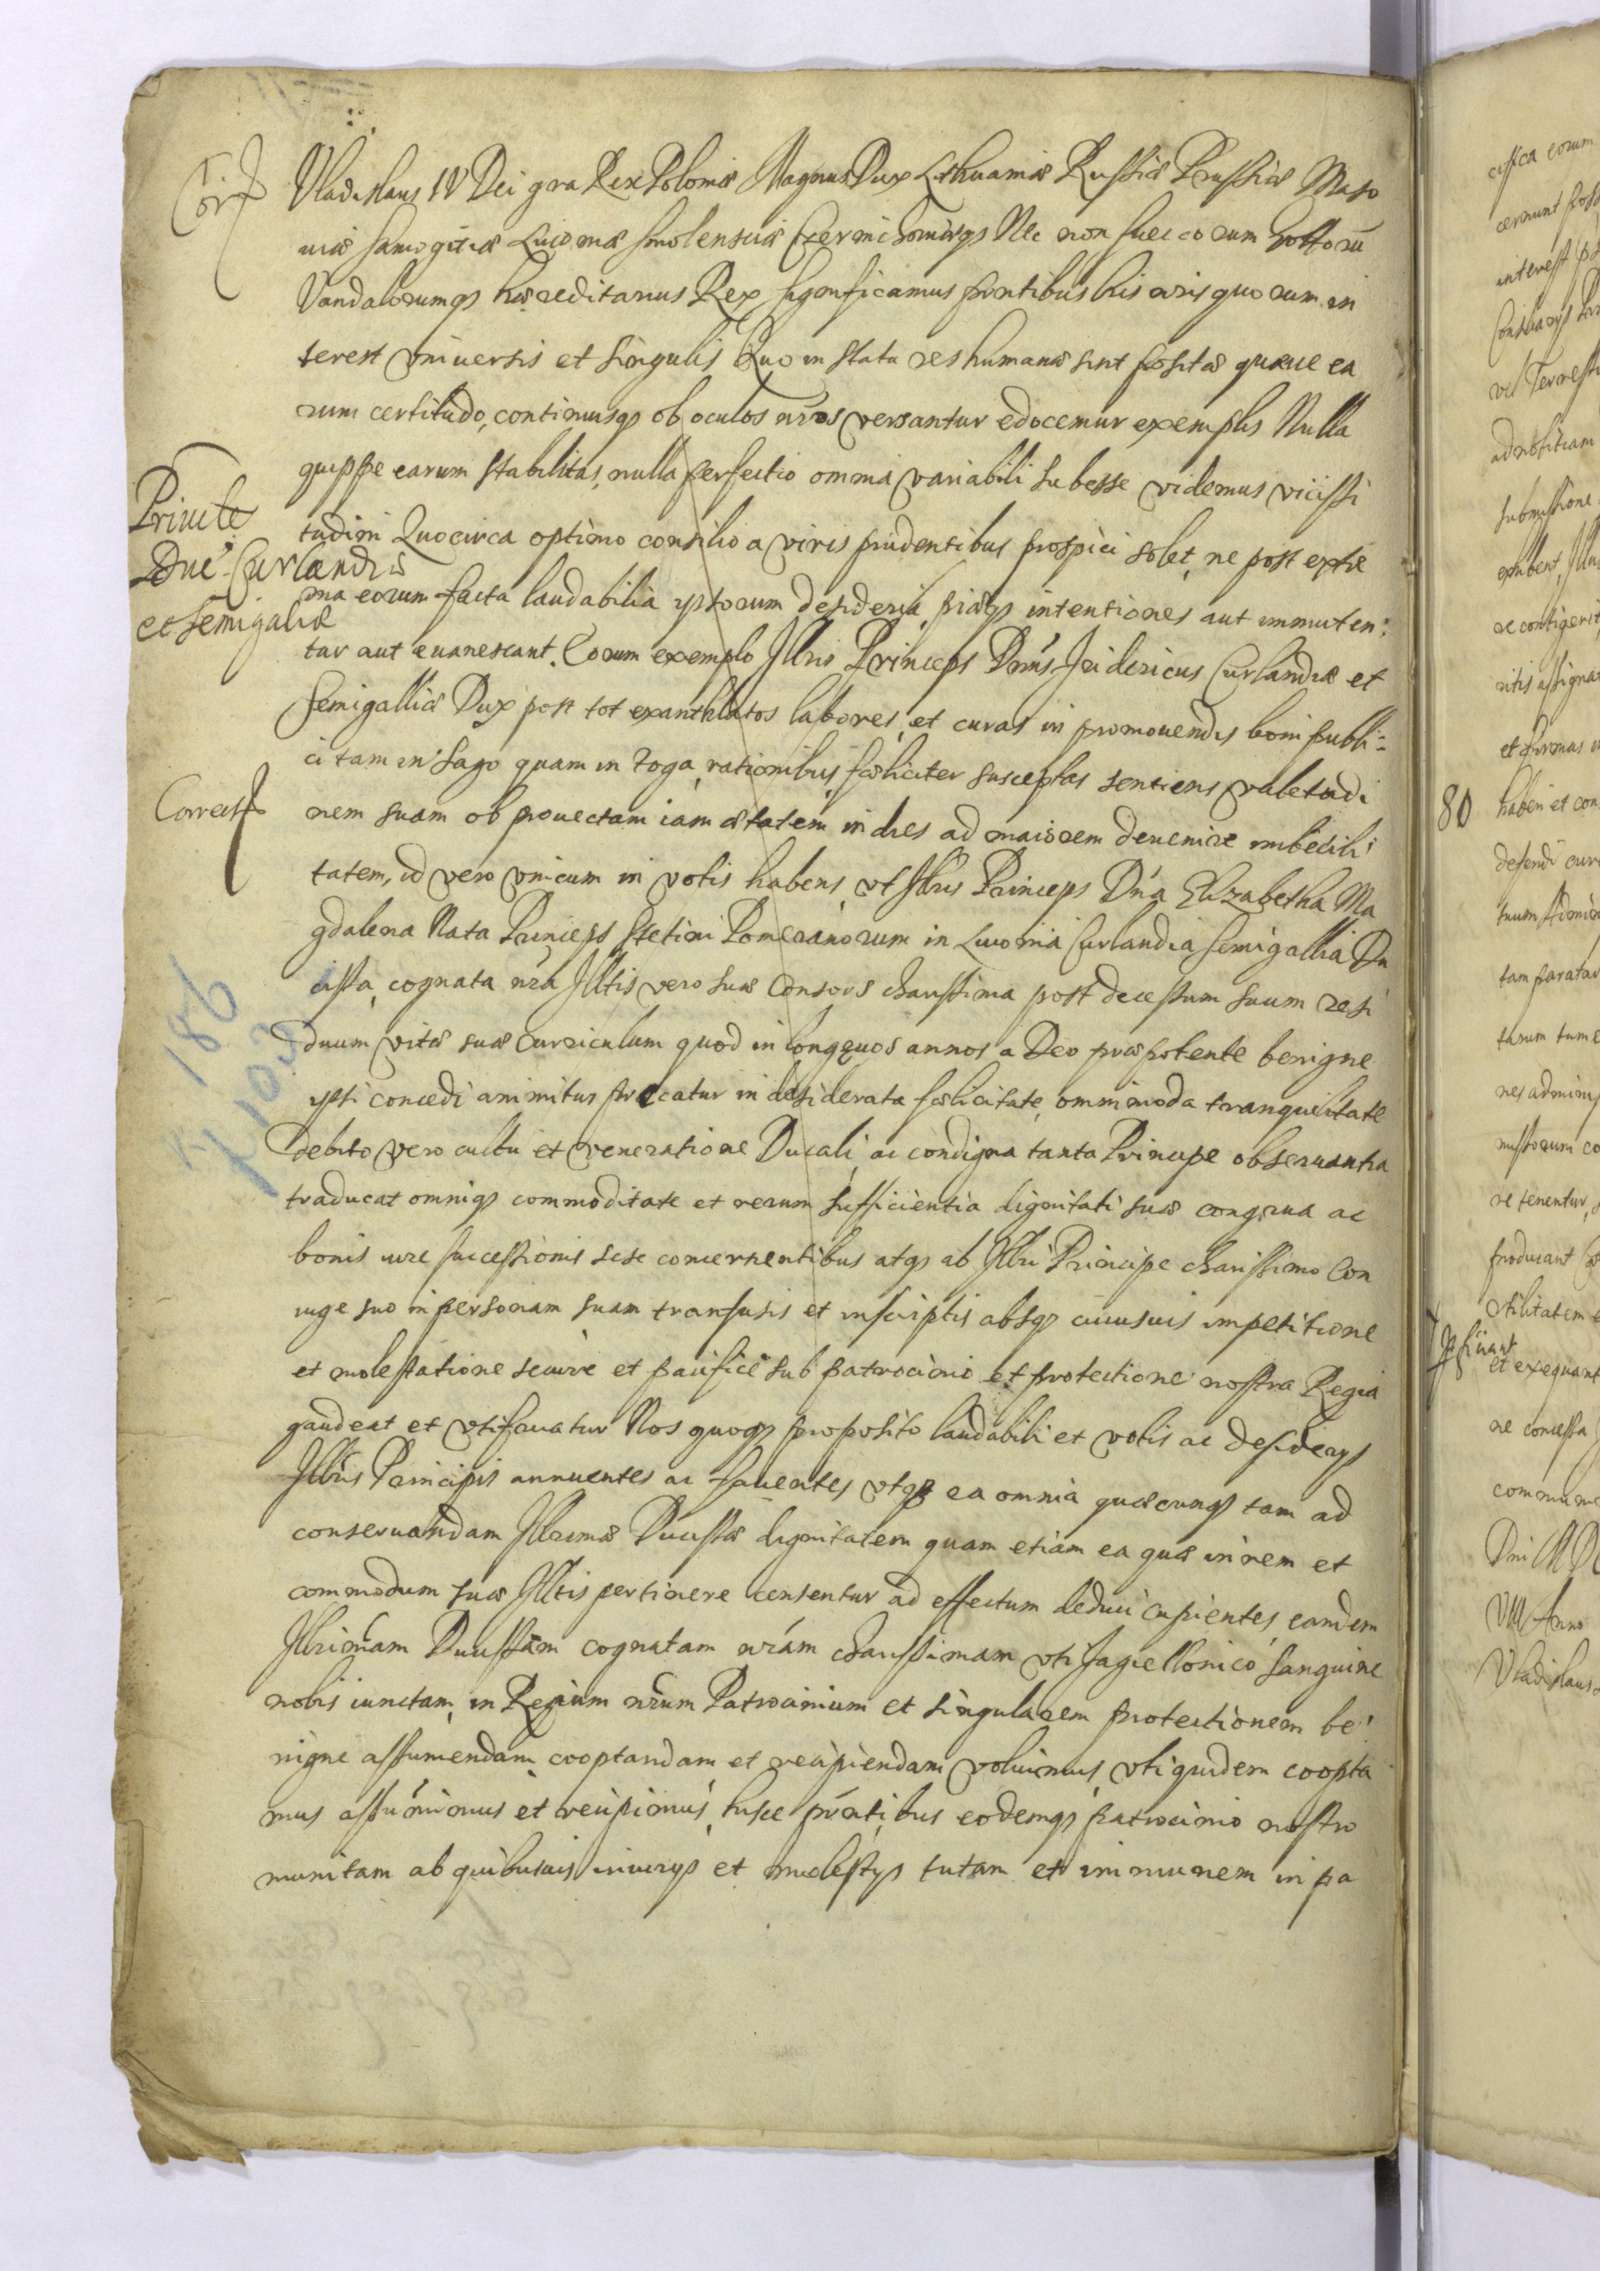 Corr
Vladislaus IV Dei gra Rex Poloniæ Magnus Dux Lithuaniæ Russiæ Prussiæ Maso
uiæ Samogitiæ Liuoniæ Smolensciæ Czernichouięqз Nec non Suecorum Gottorū
Vandalorumqз hæreditarius Rex Significamus prntibus his nris quorum in
terest vniuersis et singulis Quo in statu res humanæ sint positæ quæue ea
rum certitudo, continuisqз ob oculos nros versantur edocemur exemplis Nulla
quippe earum stabilitas, nulla perfectio omnia variabili subesse videmus vicissi
tudini Quocirca optimo consilio a viris prudentibus prospici solet, ne post extre
ma eorum facta laudabilia ipsorum desideria, piæqз intentiones aut immuten:
tur aut euanescant. Eorum exemplo Illris Princeps Dnus Fridericus Curlandiæ et
Semigalliæ Dux post tot exantlatos labores, et curas in promouendis boni publi:
ci tam in Sago quam in Toga, rationibus fœliciter susceptas sentiens valetudi
nem suam ob prouectam iam ætatem in dies ad maiorem deuenire imbecilli
tatem, id vero vnicum in votis habens, vt Illris Princeps Dna Elizabetha Ma
gdalena Nata Princeps Stetini Pomeranorum in Liuonia Curlandia Semigallia Du
cissa, cognata nra Illtis vero suæ Consors charissima post decessum suum resi
duum vitæ suæ Curriculum quod in longæuos annos a Deo præpotente benigne
ipsi concedi animitus precatur in desiderata fœlicitate, omnimoda tranquilitate
debito vero cultu et veneratione Ducali, ac condigna tanta Principe obseruantia
traducat omniqз commoditate et rerum sufficientia dignitati suæ congrua ac
bonis iure successionis sese concernentibus atqз ab Illri Principe charissimo Con
iuge suo in personam suam transfusis et inscriptis absqз cuiusuis impetitione
et molestatione secure et pacifice sub patrocinio et protectione nostra Regia
gaudeat et vtifruatur Nos quoqз proposito laudabili et votis ac desiderys
Illris Principis annuentes ac fauentes vtqз ea omnia quæcunqз tam ad
conseruandam Illrimæ Ducissæ dignitatem quam etiam ea quæ in rem et
commodum suæ Illtis pertinere censentur ad effectum deduci cupientes, eandem
Illrimam Ducissam cognatam nram charissimam vti Jagiellonico sanguine
nobis iunctam, in Regium nrum Patrocinium et singularem protectionem be:
nigne assumendam cooptandam et recipiendam voluimus, vti quidem coopta
mus assumimus et recipimus, hisce prntibus eodemqз patrocinio nostro
munitam ab quibusuis iniurys et molestys tutam et immunem in pa
Priuile
Duc. Curlandiæ
et Semigaliæ
Correct
186
103
cessica eorum
cernunt
interest
vel Terrestr
ad notitiam
submissione
exhibent, Illu
et firmas
80
haberi et con
defendi cur
tam paratar
tarum tum e
nes adminis
re tenentur,
producant
vtilitatem e
et exequant
ne concessa
communi
Dni M D
VIII Anno
Vladislaus